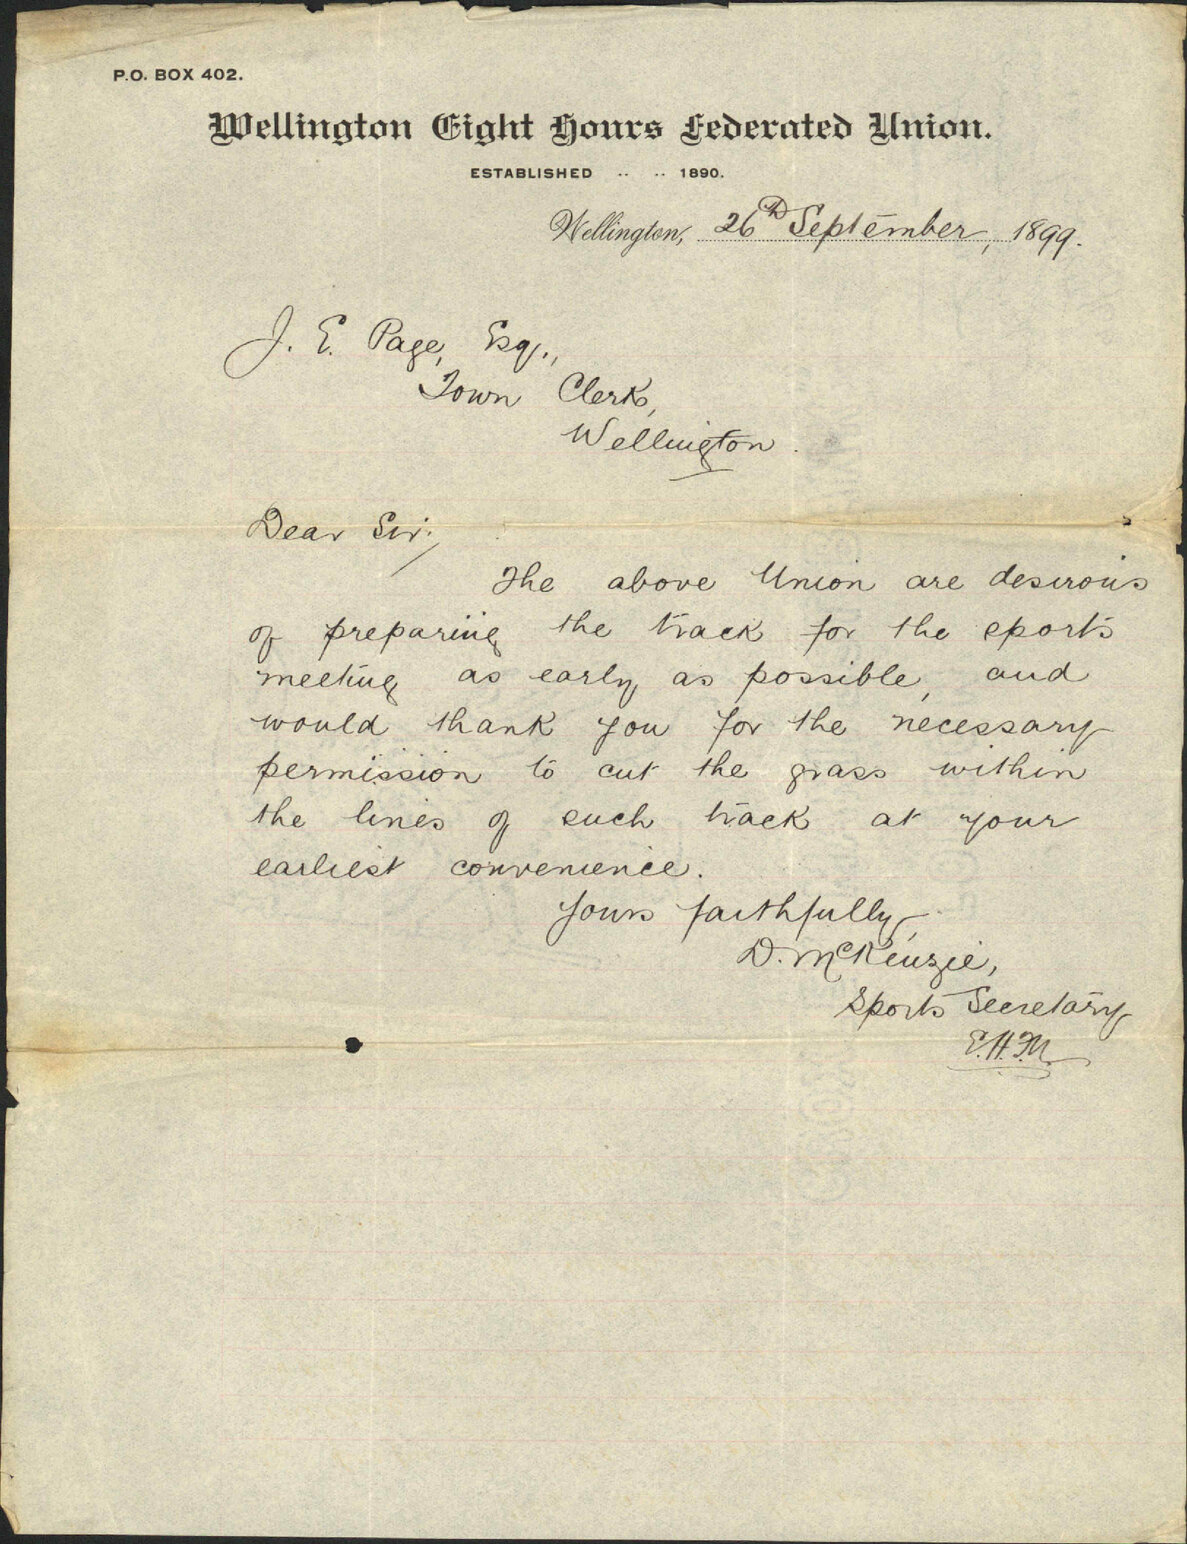 P.O. BOX 402.
Wellington Eight Hours Federated Union.
ESTABLISHED .. .. 1890.
Wellington, 26th September, 1899.
J. E. Page, Esq.,
Town Clerk,
Wellington.
Dear Sir:
The above Union are desirous
of preparing the track for the sports
meeting as early as possible, and
would thank you for the necessary
permission to cut the grass within
the lines of such track at your
earliest convenience.
Yours faithfully,
D. McKenzie,
Sports Secretary
E.H.M.